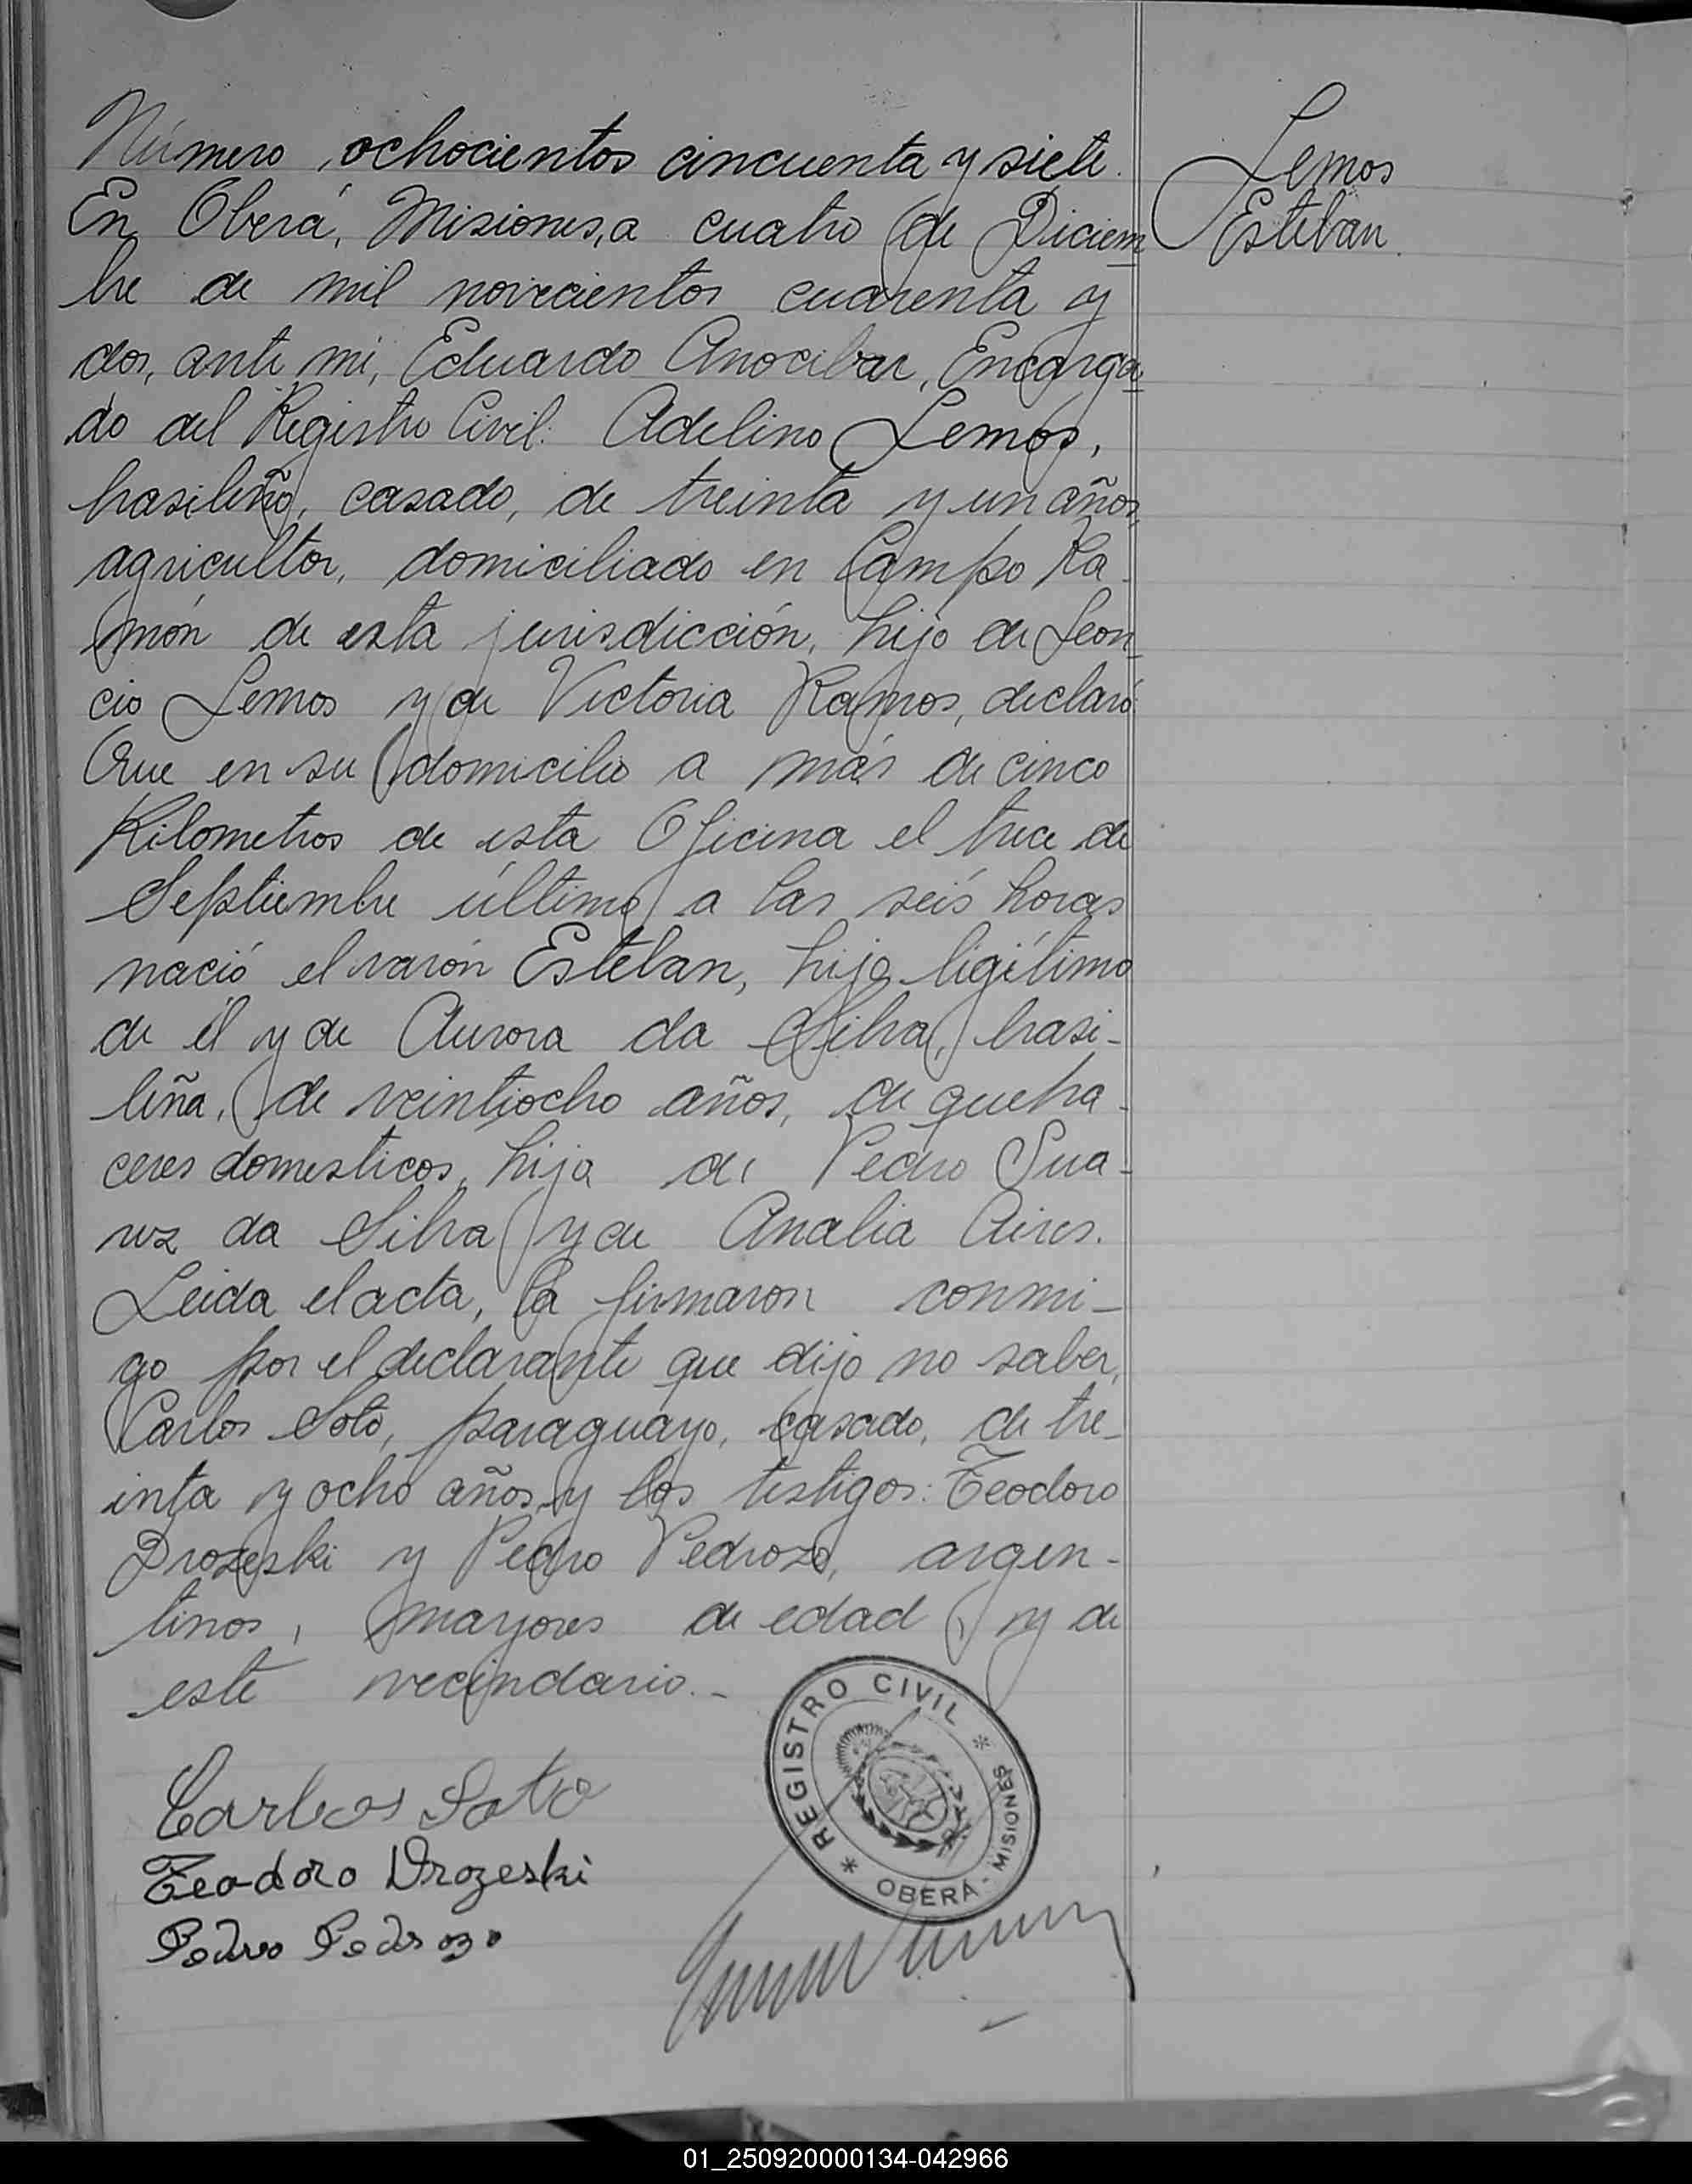 Número ochocientos cincuenta y siete.
Lemos
Esteban.
En Oberá, Misiones, a cuatro de Diciem
bre de mil novecientos cuarenta y
dos, ante mi, Eduardo Anocibar, Encarga
do del Registro Civil: Adelino Lemos,
brasileño, casado, de treinta y un años,
agricultor, domiciliado en Campo Ra
món de esta jurisdicción, hijo de Leon
cio Lemos y de Victoria Ramos, declaró
Que en su domicilio a más de cinco
Kilometros de esta Oficina el trece de
Septiembre último a las seis horas
nació el varón Esteban, hijo legítimo
de él y de Aurora da Silva, brasi-
leña, de veintiocho años, de queha-
ceres domesticos, hija de Pedro Sua-
rez da Silva y de Analia Aires.
Leida el acta, la firmaron conmi-
go por el declarante que dijo no saber,
Carlos Soto, paraguayo, casado, de tre-
inta y ocho años y los testigos: Teodoro
Drozeski y Pedro Pedrozo, argen-
tinos, mayores de edad, y de
este vecindario.-
REGISTRO CIVIL
OBERÁ - MISIONES
Carlos Soto
Teodoro Drozeski
Pedro Pedrozo
01_250920000134-042966